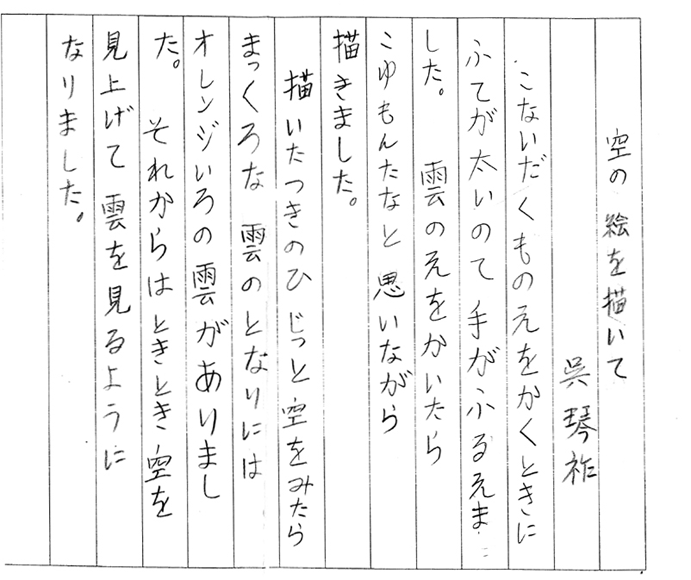 空の絵を描いて
呉琴祚
こないだくものえをかくときに
ふでが太いのて手がふるえま
した。 雲のえをかいたら
こゆもんたなと思いながら
描きました。
描いたつきのひじっと空をみたら
まっくろな雲のとなりには
オレンジいろの雲がありまし
た。それからはときとき空を
見上げて雲を見るように
なりました。